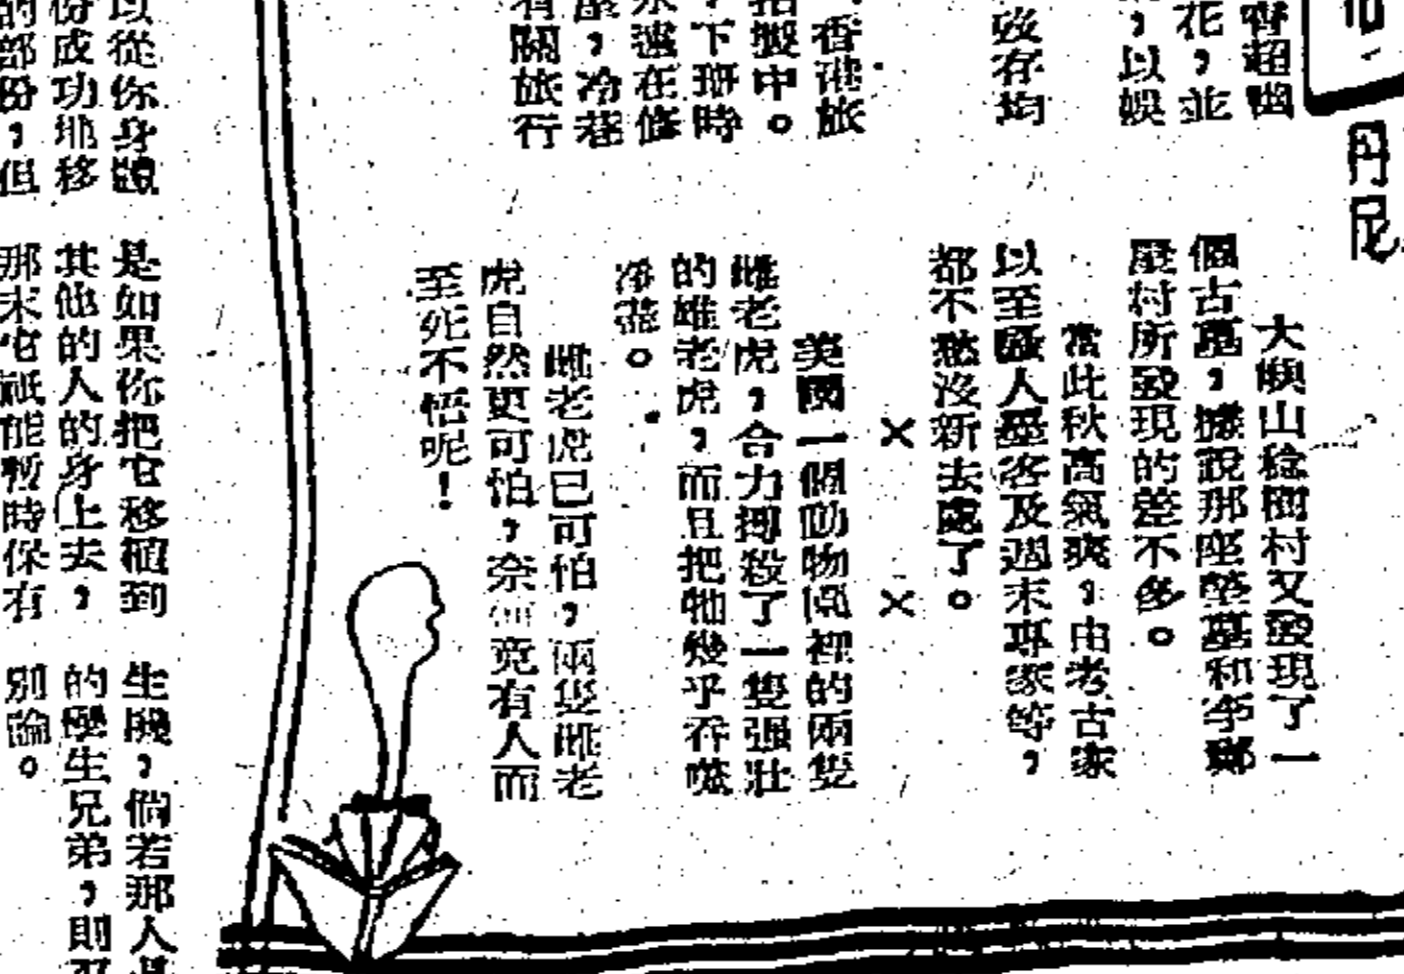 丹尼
齊超幽
花，並
，以娛
㱿存均
香港旅
拍製中。
，下班時
永遠在修
，冷巷
有關旅行
大嶼山稔樹村又發現了一
個古墓，據說那座墊墓和李鄭
屋村所發現的差不多。
當此秋高氣爽，由考古家
以至騷人墨客及週末專家等，
都不愁沒新去處了。
× ×
美國一個動物園裡的兩隻
雌老虎，合力搏殺了一隻强壯
的雄老虎，而且把牠幾乎吞噬
淨盡。
雌老虎已可怕，兩隻雌老
虎自然更可怕，奈何竟有人而
至死不悟呢！
以從你身體
份成功地移
的部份，但
是如果你把它移植到
其他的人的身上去，
那末它祇能暫時保有
生機，倘若那人是
的孿生兄弟，則
別論。